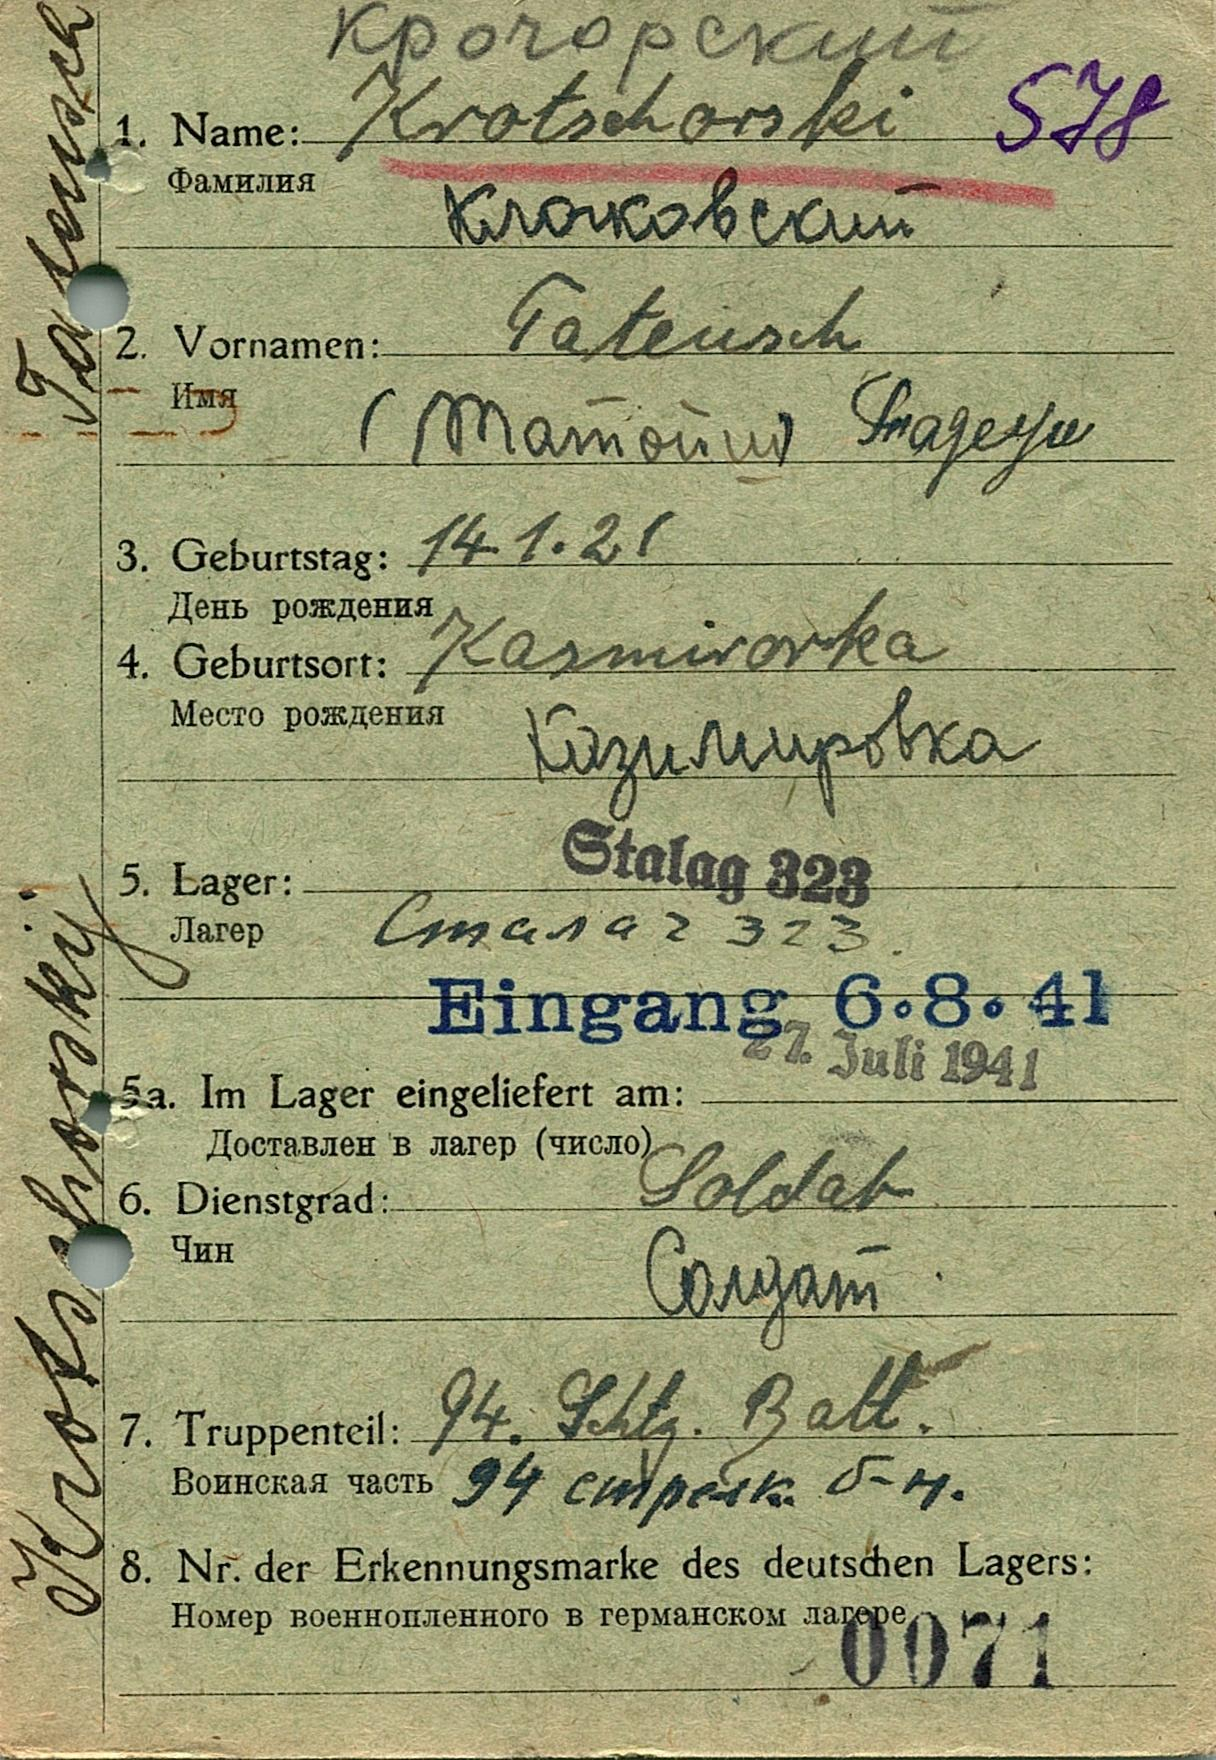 Крочорский
1. Name: Krotschorski 578
Фамилия
Клочковский
2. Vornamen: Tateusch
Имя
(Матойш) Тадеуш
3. Geburtstag: 14.1.21
День рождения
4. Geburtsort: Kasmirovka
Место рождения
Казимировка
5. Lager: Stalag 323
Лагер Сталаг 323.
Eingang 6.8.41
27. Juli 1941
5a. Im Lager eingeliefert am:
Доставлен в лагер (число)
6. Dienstgrad: Soldat
Чин
Солдат
7. Truppenteil: 94. Schtz. Batl.
Воинская часть 94 стрелк. б-н.
8. Nr. der Erkennungsmarke des deutschen Lagers:
Номер военнопленного в германском лагере
0071
Krotschorskij Tateusch